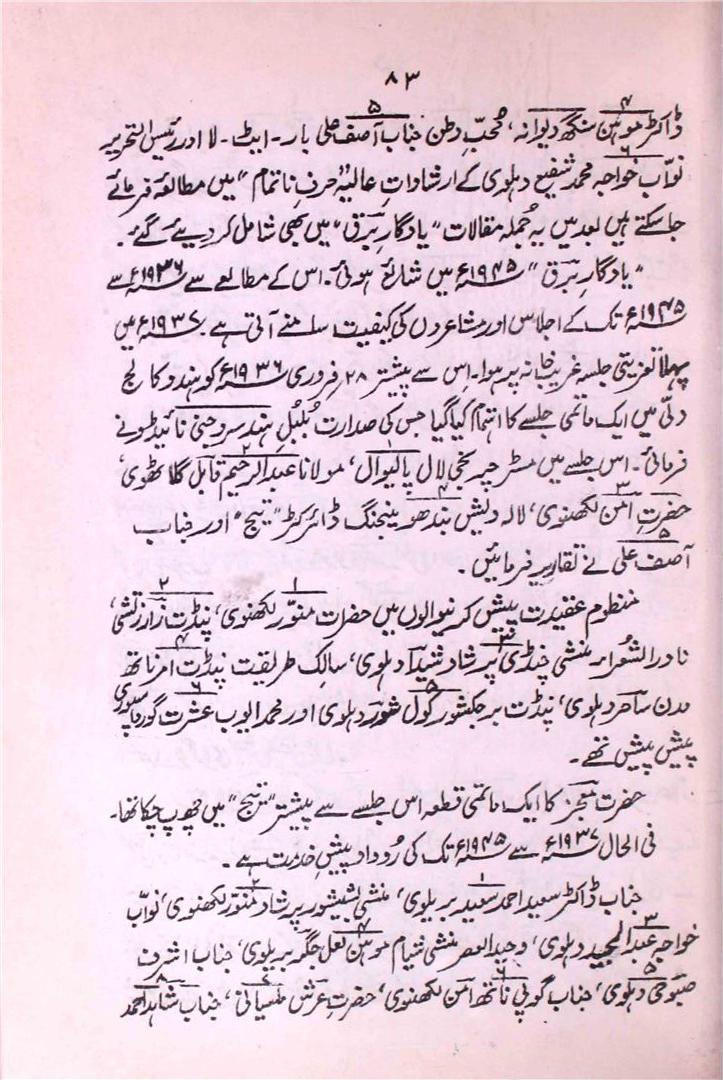 ۸۳
ڈاکٹر موہن سنگھ دیوانہ، محبِّ وطن جناب آصف علی بار۔ ایٹ۔ لا اور رئیس التحریر
نوّاب خواجہ محمد شفیع دہلوی کے ارشاداتِ عالیہ "حرفِ ناتمام" میں مطالعۂ فرمائے
جاسکتے ہیں بعد میں یہ جُملہ مقالات "یادگارِ برق" میں بھی شامل کر دیے گئے۔
"یادگارِ برق" ۱۹۴۵ء میں شائع ہوئی۔ اس کے مطالعے سے ۱۹۳۶ء سے
۱۹۴۵ء تک کے اجلاس اور مشاعروں کی کیفیت سامنے آتی ہے۔ ۱۹۳۷ء میں
پہلا تعزیتی جلسہ غریب خانہ پر ہوا۔ اس سے پیشتر ۲۸ فروری ۱۹۳۶ء کو ہندو کالج
دلّی میں ایک ماتمی جلسے کا اہتمام کیا گیا جس کی صدارت بُلبُلِ ہند سروجنی نائیڈو نے
فرمائی۔ اس جلسے میں مسٹر چرنجی لال پالیوال۱، مولانا عبدالرحیم۲ قابل گلاٹھوی،
حضرتِ امن۳ لکھنوی، لالہ دیش بندھو۴ مینجنگ ڈائرکٹر "تیج" اور جناب
آصف علی۵ نے تقاریر فرمائیں۔
منظوم عقیدت پیش کرنیوالوں میں حضرات منوّر۱ لکھنوی، پنڈت۲ زار زتشی،
نادر الشعراء منشی چنڈی۳ پرشاد شیدا دہلوی، سالک طریقت پنڈت۴ امرناتھ
مدن ساحر دہلوی، پنڈت برجکشور۵ کول شور دہلوی اور محمد ایوب۶ عشرت گورداسپوری
پیش پیش تھے۔
حضرت کا ایک ماتمی قطعہ اس جلسے سے پیشتر "تیج" میں چھپ چکا تھا۔
فی الحال ۱۹۳۷ء سے ۱۹۴۵ء تک کی رُوداد پیشِ خدمت ہے۔
جناب ڈاکٹر سعید احمد سعید۱ بریلوی، منشی بشیشور۲ پرشاد منوّر لکھنوی، نوّاب
خواجہ۳ عبدالمجید دہلوی، وحید العصر منشی شیام موہن۴ لعل جگر بریلوی، جناب اشرف
صبوحی۵ دہلوی، جناب گوپی۶ ناتھ امن لکھنوی، حضرت عرش۷ ملسیانی، جناب شاہد۸ احمد